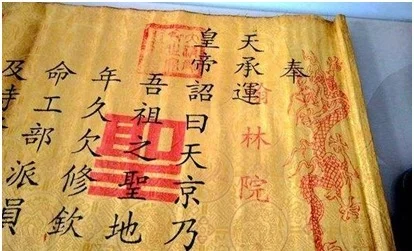 奉
天承運
翰林院
皇帝詔曰天京乃
吾祖之聖地
年久欠修欽
命工部派員
及時